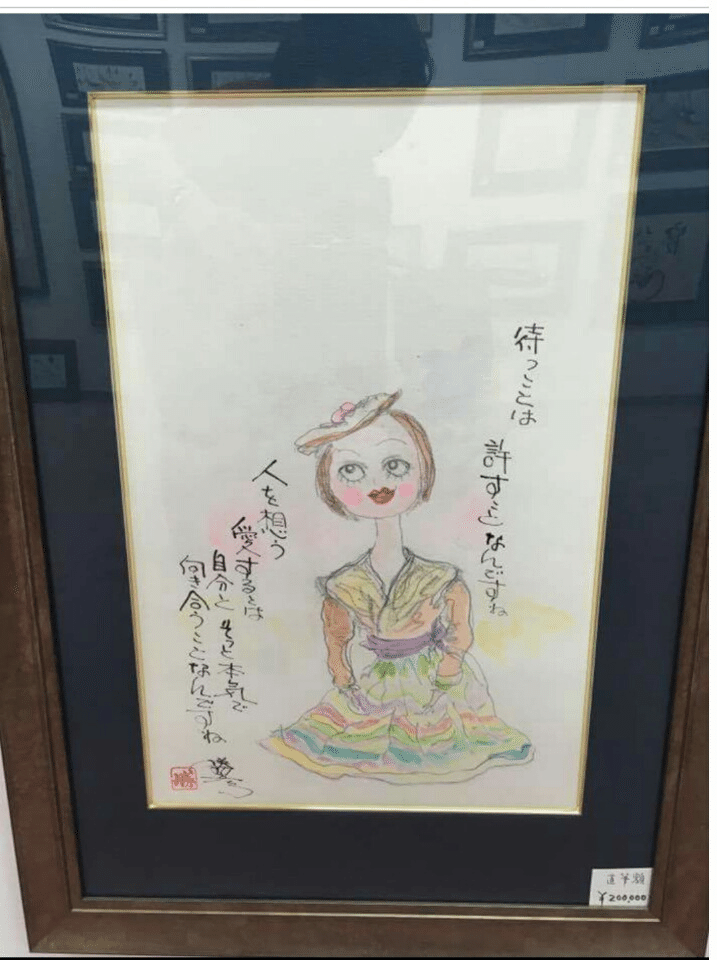 待つことは
許すことなんですね
人を想う
愛するとは
自分と もっと本気で
向き合うことなんですね
直筆額
¥200,000